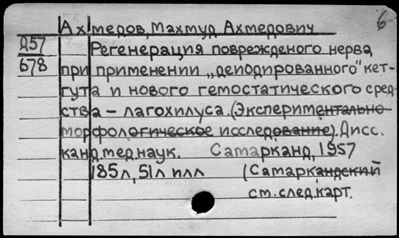 6
Ахмедов, Махмуд Ахмедович
Д57
678
Регенерация поврежденого нерва
при применении „деиодированного" кет-
гута и нового гемостатического сред-
ства – лагохилуса. (Экспериментально-
морфологическое исследование). Дисс.
канд. мед. наук. Самарканд, 1957
185л, 51л илл (Самаркандский
см. след. карт.